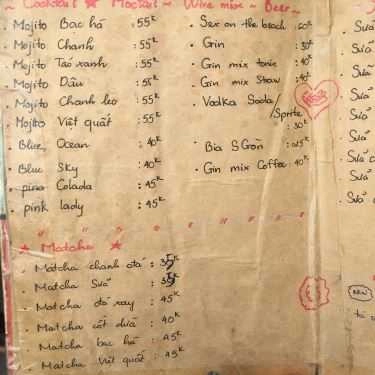 ~ Cocktail ★ Mocktail ~ Wine mix ~ Beer ~
• Mojito Bạc hà : 55k
• Mojito Chanh : 55k
• Mojito Táo xanh : 55k
• Mojito Dâu : 55k
• Mojito Chanh leo : 55k
• Mojito Việt quất : 55k
• Blue Ocean : 40k
• Blue Sky : 40k
• pina Colada : 45k
• pink lady : 45k
• Sex on the beach : 60k
• Gin : 30k
• Gin mix tonic : 40k
• Gin mix : 40k
• Vodka Soda
/Sprite
: 30k
• Bia SGòn : 25k
• Gin mix Coffee : 40k
★ Matcha ★
• Matcha chanh đá : 35k
• Matcha Sữa : 35k
• Matcha đá xay : 45k
• Matcha cốt dừa : 40k
• Matcha bạc hà : 45k
• Matcha Việt quất : 45k
Sữa
• Sữa
• Sữa
• Sữa
• Sữa
• Sữa
• Sữa
• Sữa
• Sữa